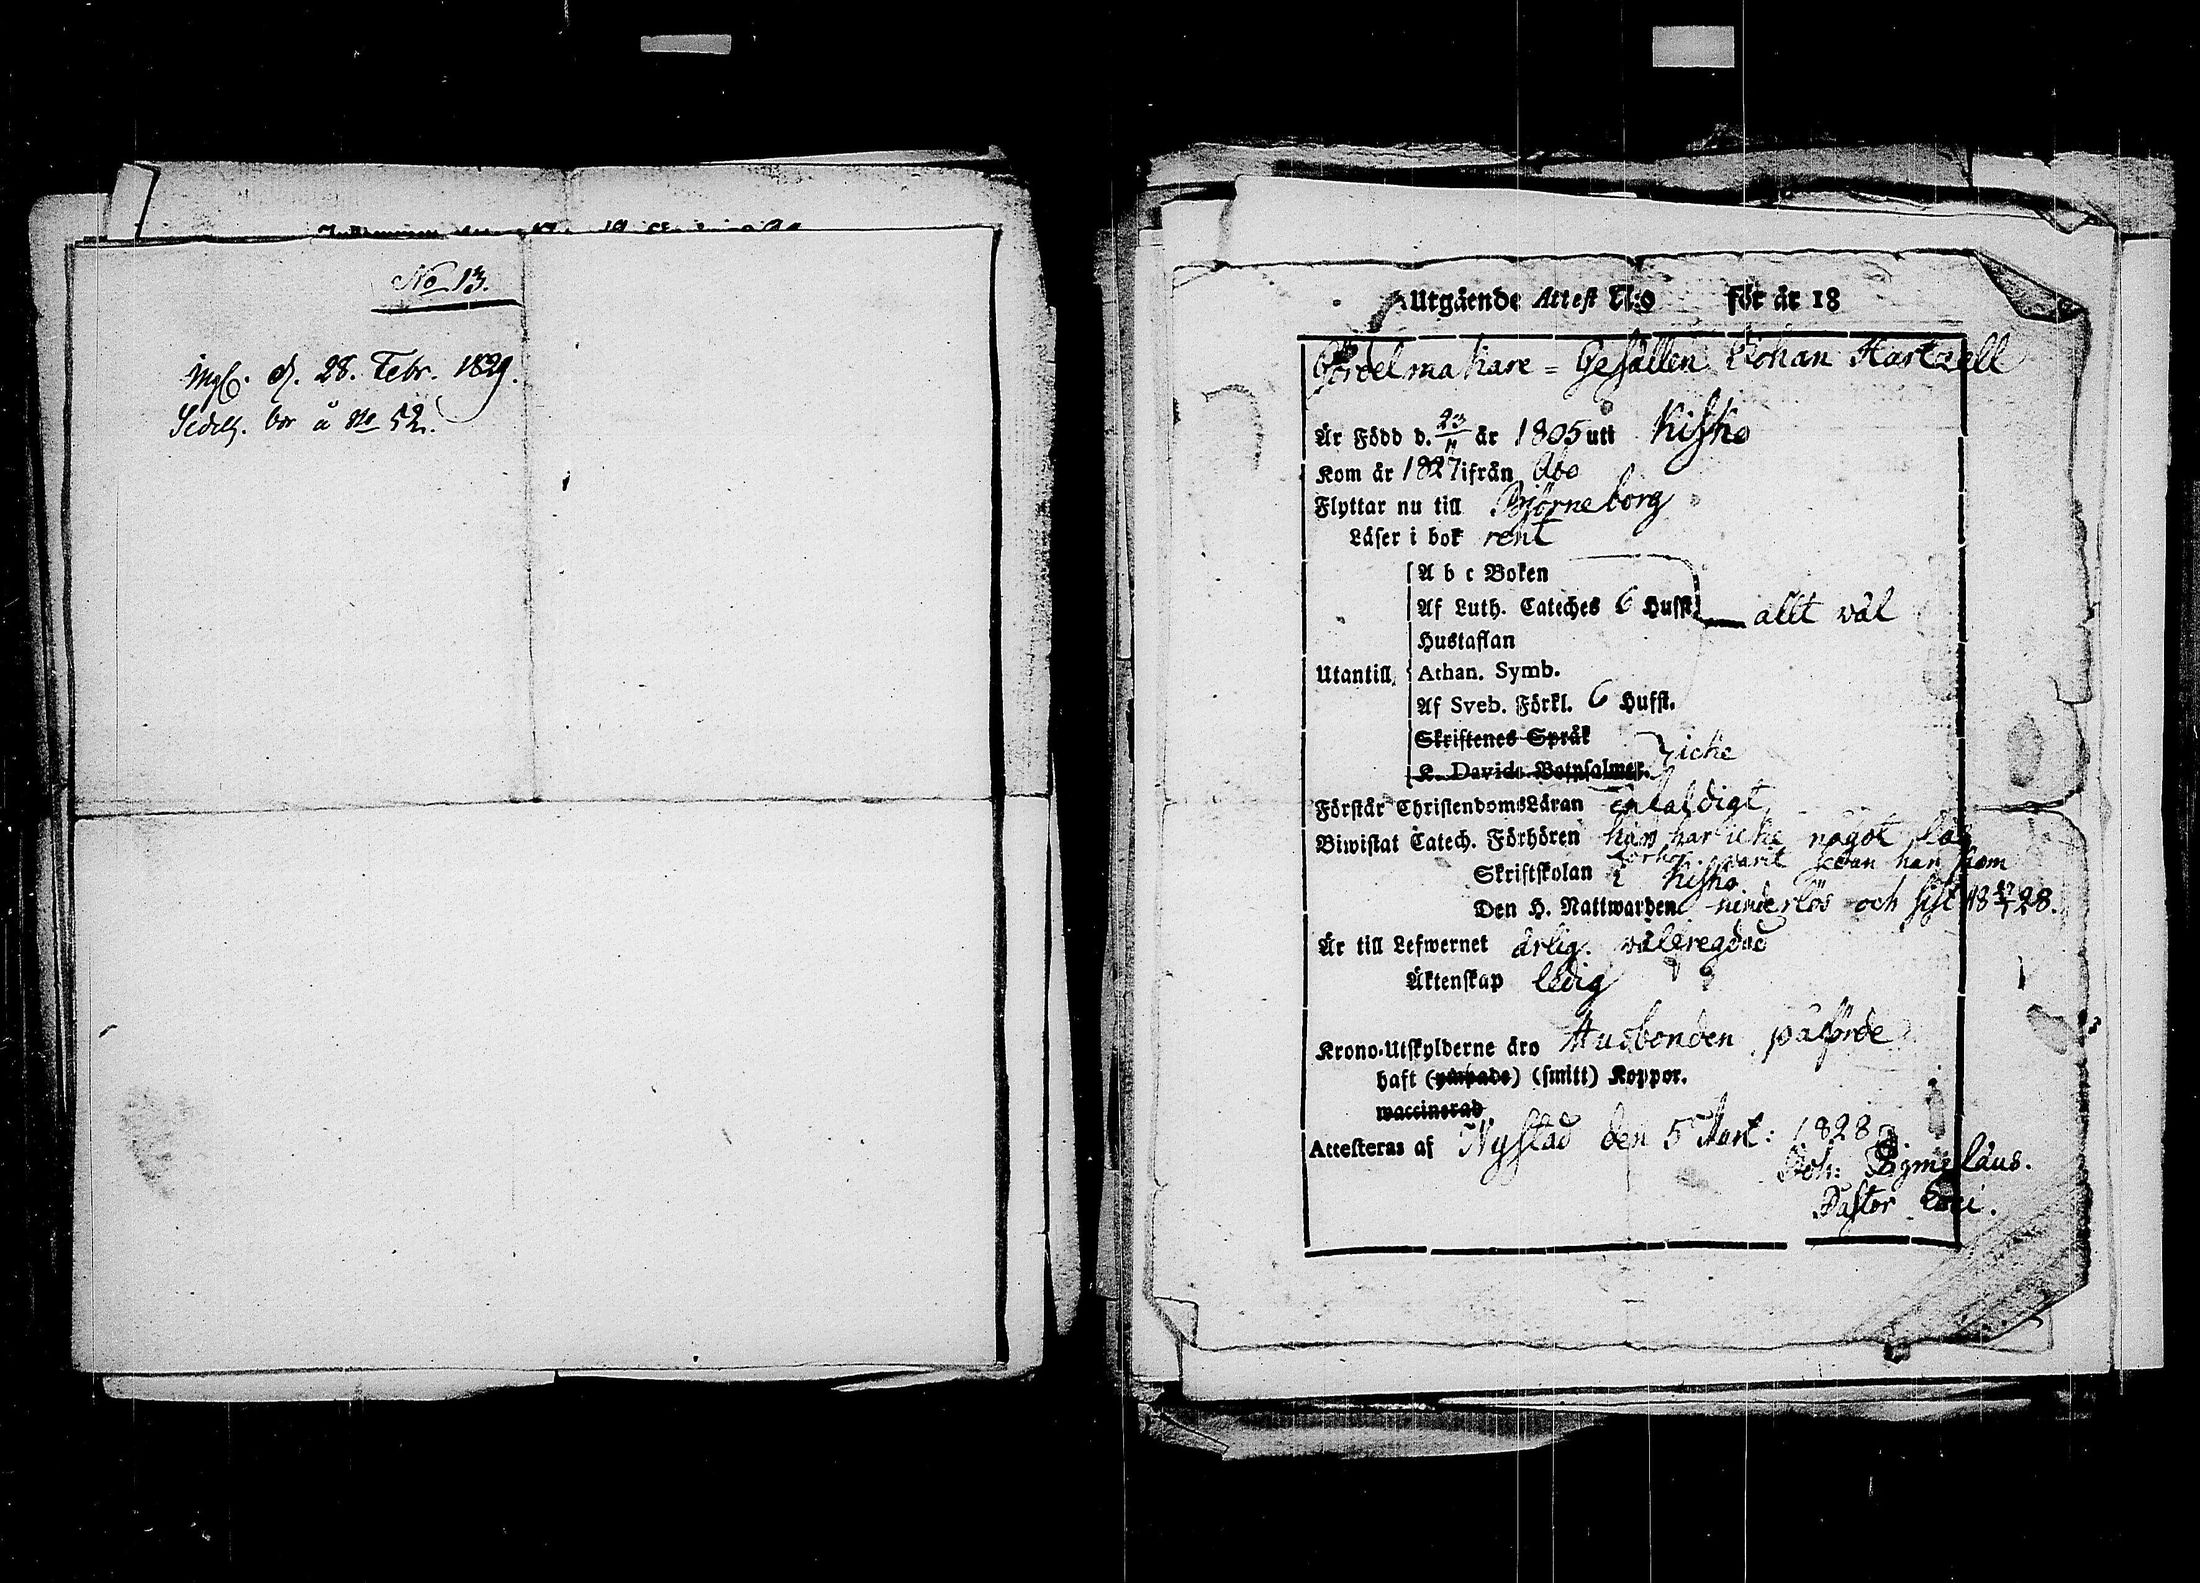 No 13.
Ingl. d. 28. Febr. 1829.
bor å No 52.
Utgående Attest N:o för år 18
Gördelmakare = Gesällen Johan Hartzell
Är Född d. 23/11 år 1805 uti Kisko
Kom år 1827 ifrån Åbo
Flyttar nu till Björneborg
Läser i bok rent
A b c Boken
Af Luth. Cateches 6 Hufst. allt wäl
Hustaflan
Utantill Athan. Symb.
Af Sveb. Förkl. 6 Hufst.
Skriftenes Språk
K. Davids Botpsalmer. icke
Förstår Christendoms Läran enfaldigt
Biwistat Catech. Förhören har icke något
förhör warit sedan han kom
Skriftskolan i Kisko
Den H. Nattwarden och sist 18 28.
Är till Lefwernet ärlig. wälfregdad
Äktenskap ledig
Krono-Utskylderne äro Husbonden påförde
haft (ympade) (smitt) Koppor.
waccinerad
Attesteras af Nystad den 5 Mart: 1828
Joh:
Pastor loci.